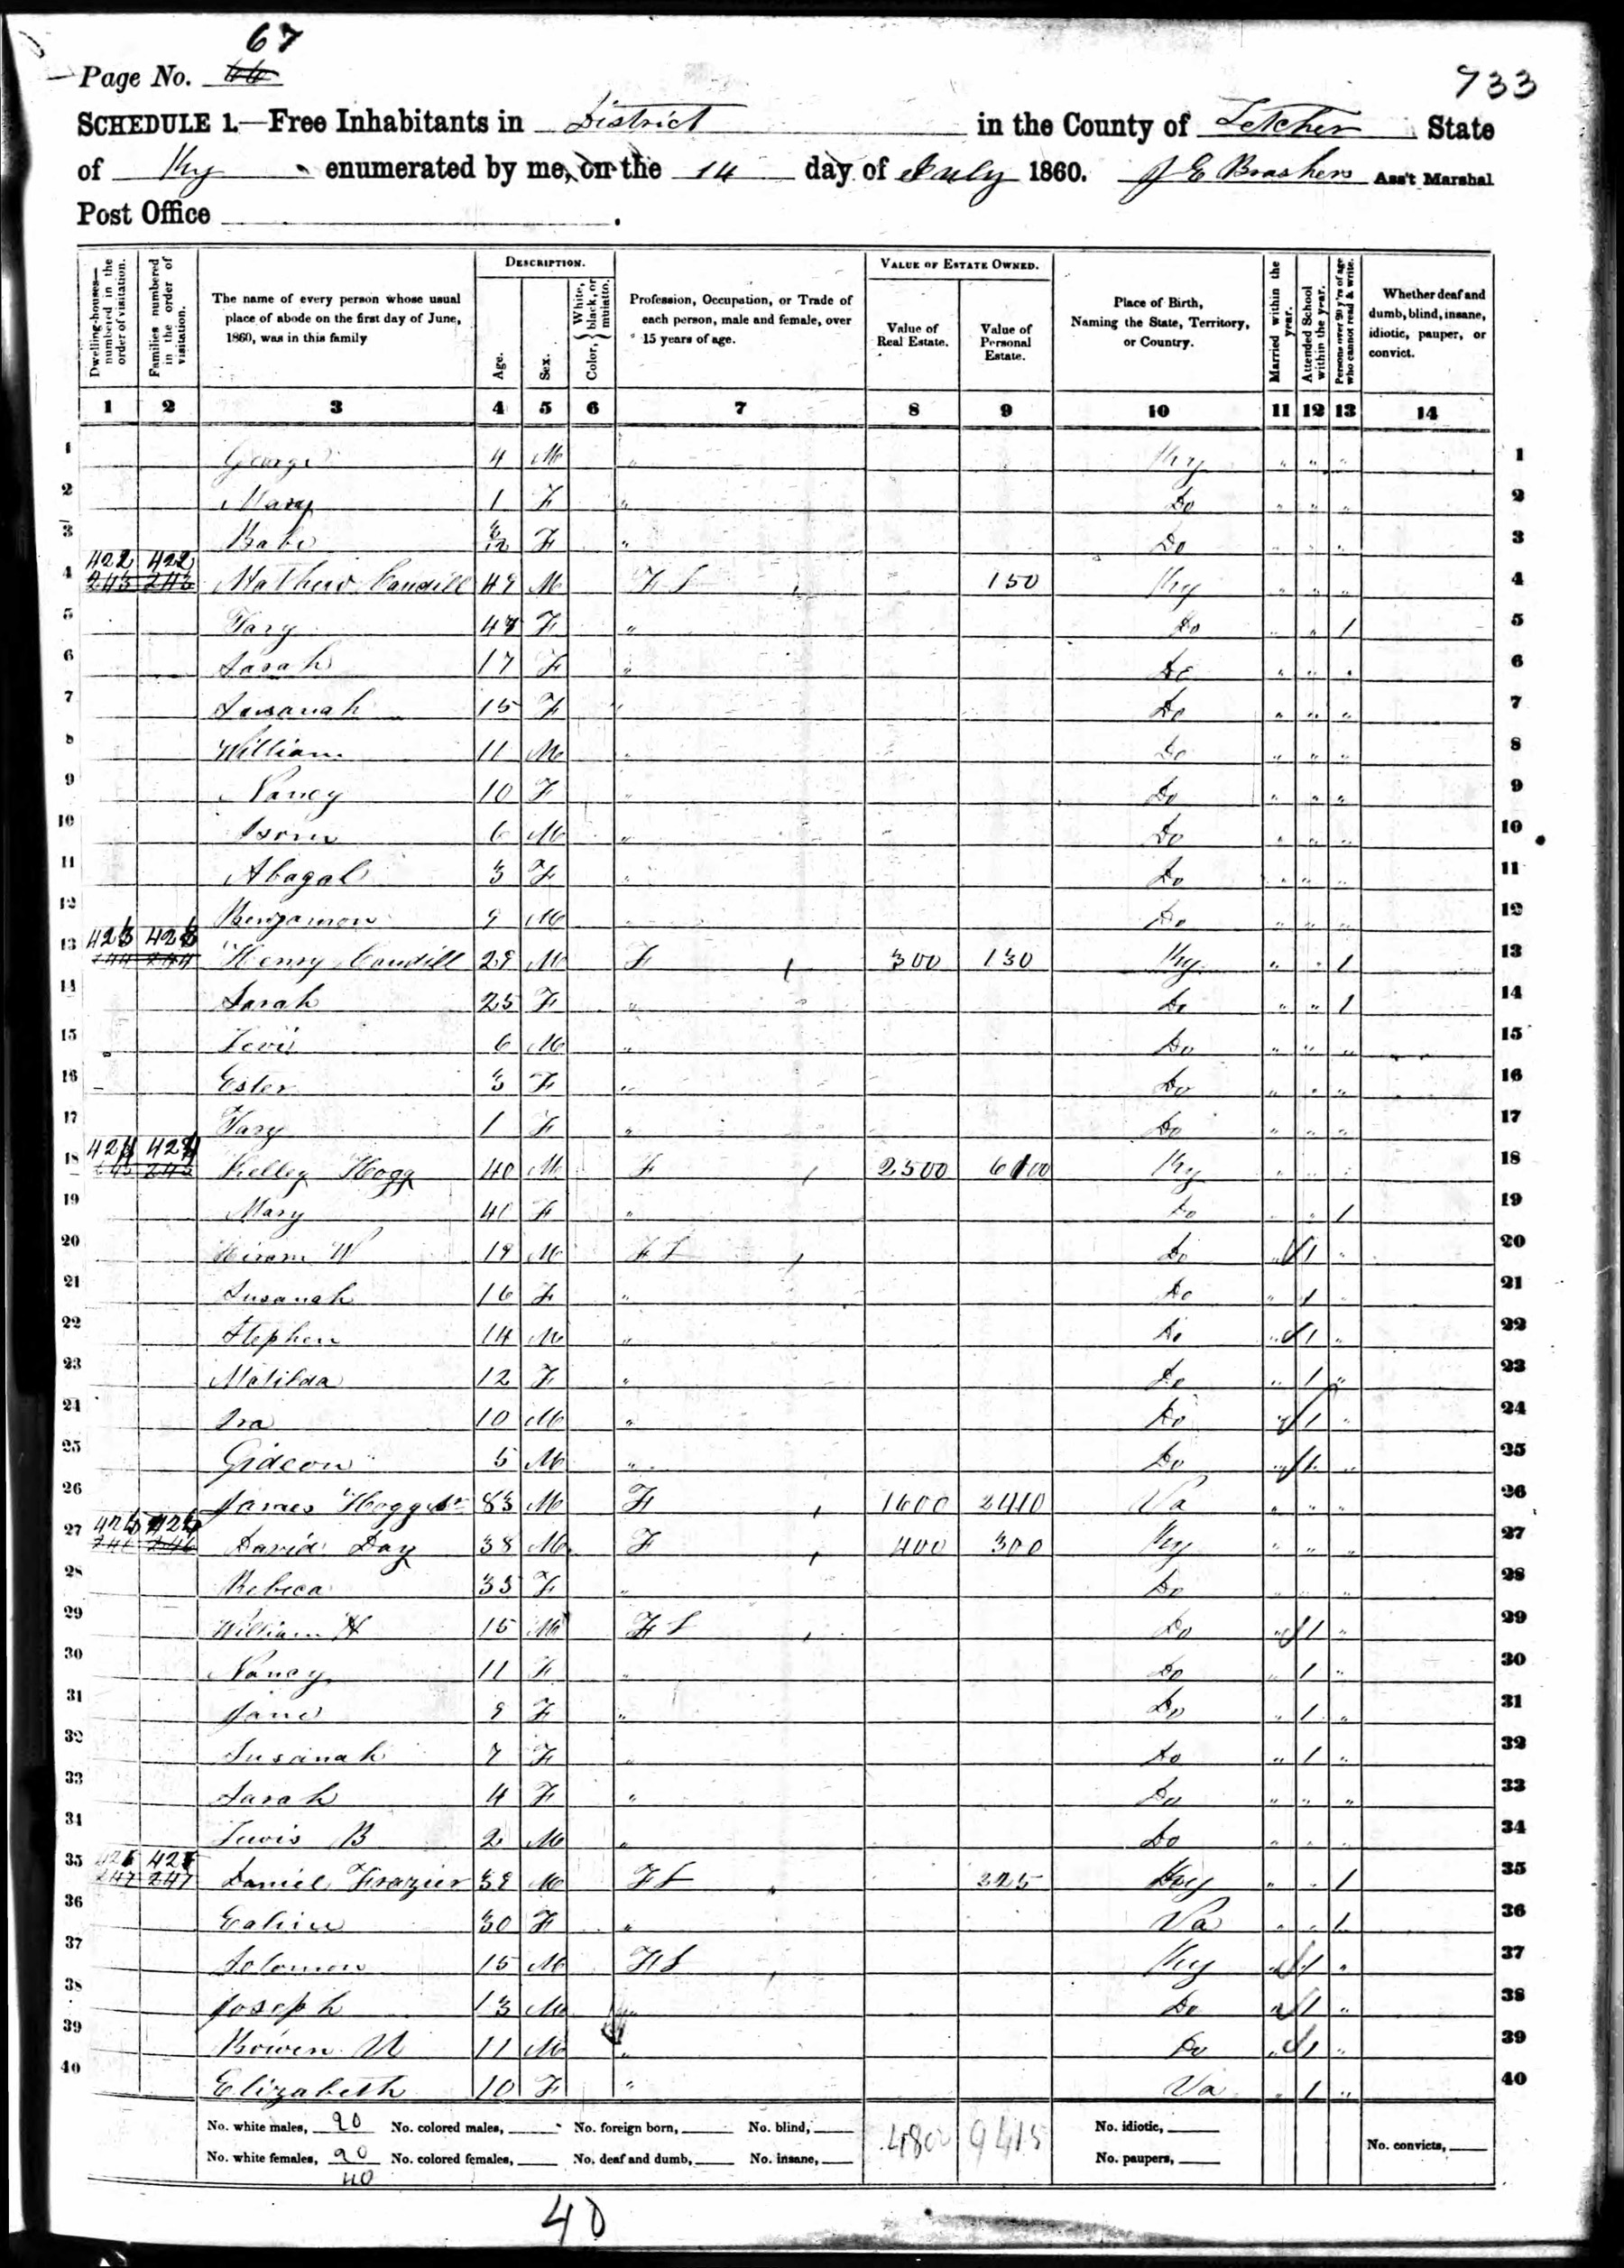 67
Page No. 66
733
SCHEDULE 1.—Free Inhabitants in District in the County of Letcher State
of Ky enumerated by me, on the 14 day of July 1860. J E Brashers Ass't Marshal
Post Office
Dwelling-houses—numbered in the order of visitation.
Families numbered in the order of visitation.
The name of every person whose usual place of abode on the first day of June, 1860, was in this family
DESCRIPTION.
Age.
Sex.
Color, { White, black, or mulatto. }
Profession, Occupation, or Trade of each person, male and female, over 15 years of age.
VALUE OF ESTATE OWNED.
Value of Real Estate.
Value of Personal Estate.
Place of Birth, Naming the State, Territory, or Country.
Married within the year.
Attended School within the year.
Persons over 20 y'rs of age who cannot read & write.
Whether deaf and dumb, blind, insane, idiotic, pauper, or convict.
1 2 3 4 5 6 7 8 9 10 11 12 13 14
1 George 4 M " Ky " " " 1
2 Mary 1 F " Do " " " 2
3 Babe F " Do " " " 3
422 422
4 243 243 Mathew Caudill 49 M F L 150 Ky " " " 4
5 Fary 47 F " Do " " 1 5
6 Sarah 17 F " Do " " " 6
7 Susanah 15 F " Do " " " 7
8 William 11 M " Do " " " 8
9 Nancy 10 F " Do " " " 9
10 Isom 6 M " Do " " " 10
11 Abagal 3 F " Do " " " 11
12 Benjamon 9 M " Do " " " 12
423 423
13 244 244 Henry Caudill 29 M F 300 130 Ky " " 1 13
14 Sarah 25 F " Do " " 1 14
15 Levi 6 M " Do " " " 15
16 Ester 3 F " Do " " " 16
17 Fary 1 F " Do " " " 17
424 424
18 245 245 Kelley Hogg 40 M F 2500 6100 Ky " " " 18
19 Mary 41 F " Do " " 1 19
20 Hiram W 19 M F L Do " 1 " 20
21 Susanah 16 F " Do " 1 " 21
22 Stephen 14 M " Do " 1 " 22
23 Matilda 12 F " Do " 1 " 23
24 Ira 10 M " Do " 1 " 24
25 Gideon 5 M " Do " 1 " 25
26 James Hogg Sr 83 M F 1600 2410 Va " " " 26
27 246 246 David Day 38 M F 400 300 Ky " " " 27
28 Rebeca 35 F " Do " " " 28
29 William H 15 M F L Do " 1 " 29
30 Nancy 11 F " Do " 1 " 30
31 Jane 9 F " Do " 1 " 31
32 Susanah 7 F " Do " 1 " 32
33 Sarah 4 F " Do " " " 33
34 Lewis B 2 M " Do " " " 34
35 247 247 Daniel Frazier 39 M F L 325 Ky " " 1 35
36 30 F " Va " " 1 36
37 Solomon 15 M F L Ky " 1 " 37
38 Joseph 13 M " Do " 1 " 38
39 Bowen 11 M " Do " 1 " 39
40 Elizabeth 10 F " Va " 1 " 40
No. white males, 20 No. colored males, No. foreign born, No. blind, 4800 9415 No. idiotic,
No. white females, 20 No. colored females, No. deaf and dumb, No. insane, No. paupers, No. convicts,
40
40